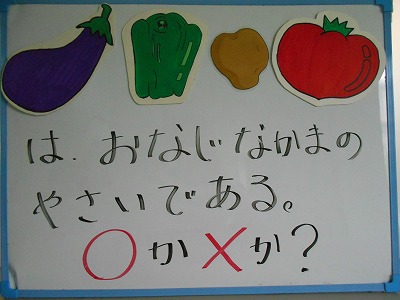 は、おなじなかまの
やさいである。
○か×か?